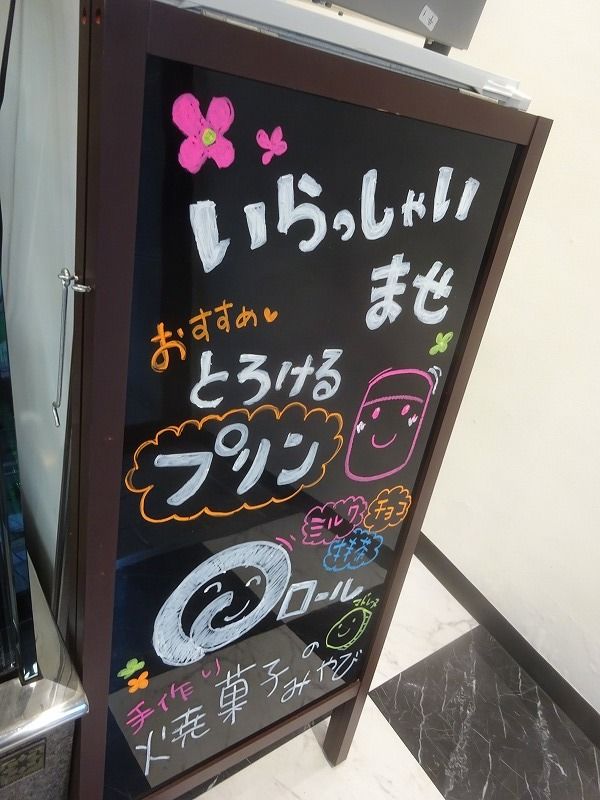 いらっしゃい
ませ
おすすめ
とろける
プリン
ミルク
チョコ
抹茶
ロール
マドレーヌ
手作り
焼菓子の
みやび